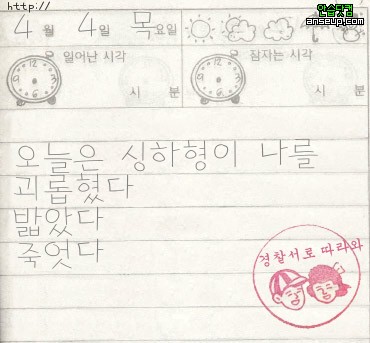 http://
안습닷컴
anseup.com
4월 4일 목요일
일어난 시각
잠자는 시각
12
3
6
9
12
3
6
9
시 분
시 분
오늘은 싱하형이 나를
괴롭혔다
밟았다
죽엇다
경찰서로 따라와